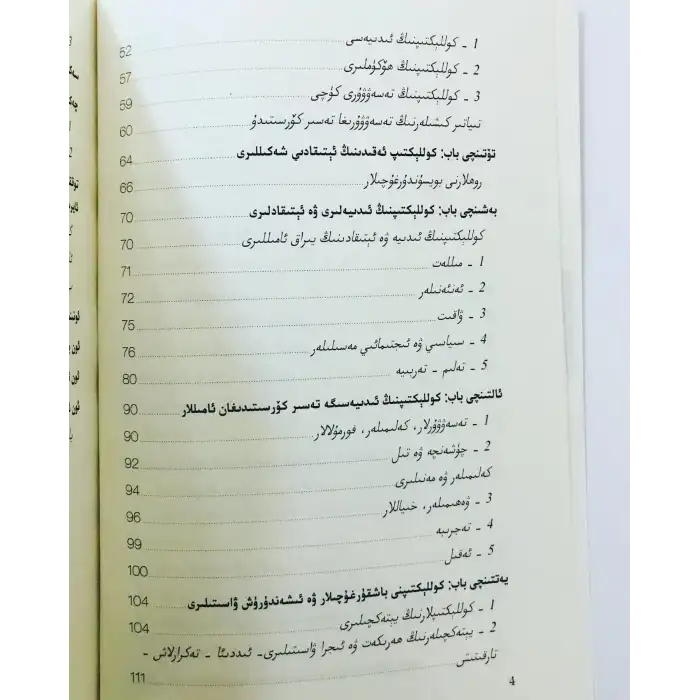 1 ـ كوللېكتىپنىڭ ئىدىيەسى 52
2 ـ كوللېكتىپنىڭ ھۆكۈملىرى 57
3 ـ كوللېكتىپنىڭ تەسەۋۋۇرى كۈچى 59
تىياتىر كىشىلەرنىڭ تەسەۋۋۇرىغا تەسىر كۆرسىتىدۇ 60
تۆتىنچى باب: كوللېكتىپ ئەقىدىنىڭ ئېتىقادىي شەكىللىرى 64
روھلارنى بويسۇندۇرغۇچىلار 66
بەشىنچى باب: كوللېكتىپنىڭ ئىدىيەلىرى ۋە ئېتىقادلىرى 70
كوللېكتىپنىڭ ئىدىيە ۋە ئېتىقادىنىڭ يىراق ئامىللىرى 70
1 ـ مىللەت 71
2 ـ ئەنئەنىلەر 72
3 ـ ۋاقىت 75
4 ـ سىياسىي ۋە ئىجتىمائىي مەسىلىلەر 76
5 ـ تەلىم - تەربىيە 80
ئالتىنچى باب: كوللېكتىپنىڭ ئىدىيەسىگە تەسىر كۆرسىتىدىغان ئامىللار 90
1 ـ تەسەۋۋۇرلار، كەلىمىلەر، فورمۇلالار 90
2 ـ چۈشەنچە ۋە تىل 92
كەلىمىلەر ۋە مەنىلىرى 94
3 ـ ۋەھىمىلەر، خىياللار 96
4 ـ تەجرىبە 99
5 ـ ئەقىل 100
يەتتىنچى باب: كوللېكتىپنى باشقۇرغۇچىلار ۋە ئىشەندۈرۈش ۋاسىتىلىرى 104
1 ـ كوللېكتىپلارنىڭ يېتەكچىلىرى 104
2 ـ يېتەكچىلەرنىڭ ھەرىكەت ۋە ئىجرا ۋاسىتىلىرى- ئىددىئا - تەكرارلاش -
تارقىتىش 111
4